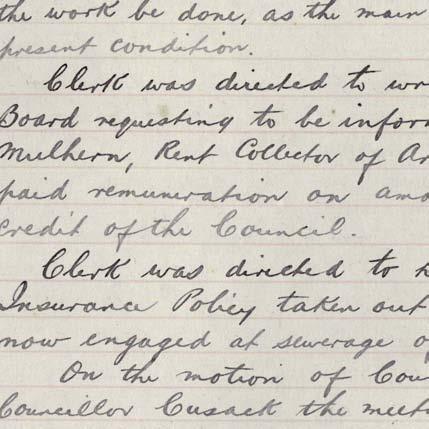 the work be done, as the main
present condition.
Clerk was directed to wr
Board requesting to be infor
Mulhern, Rent Collector of Ar
paid remuneration on amo
credit of the Council.
Clerk was directed to
Insurance Policy taken out
now engaged at sewerage o
On the motion of Cou
Councillor Cusack the meet